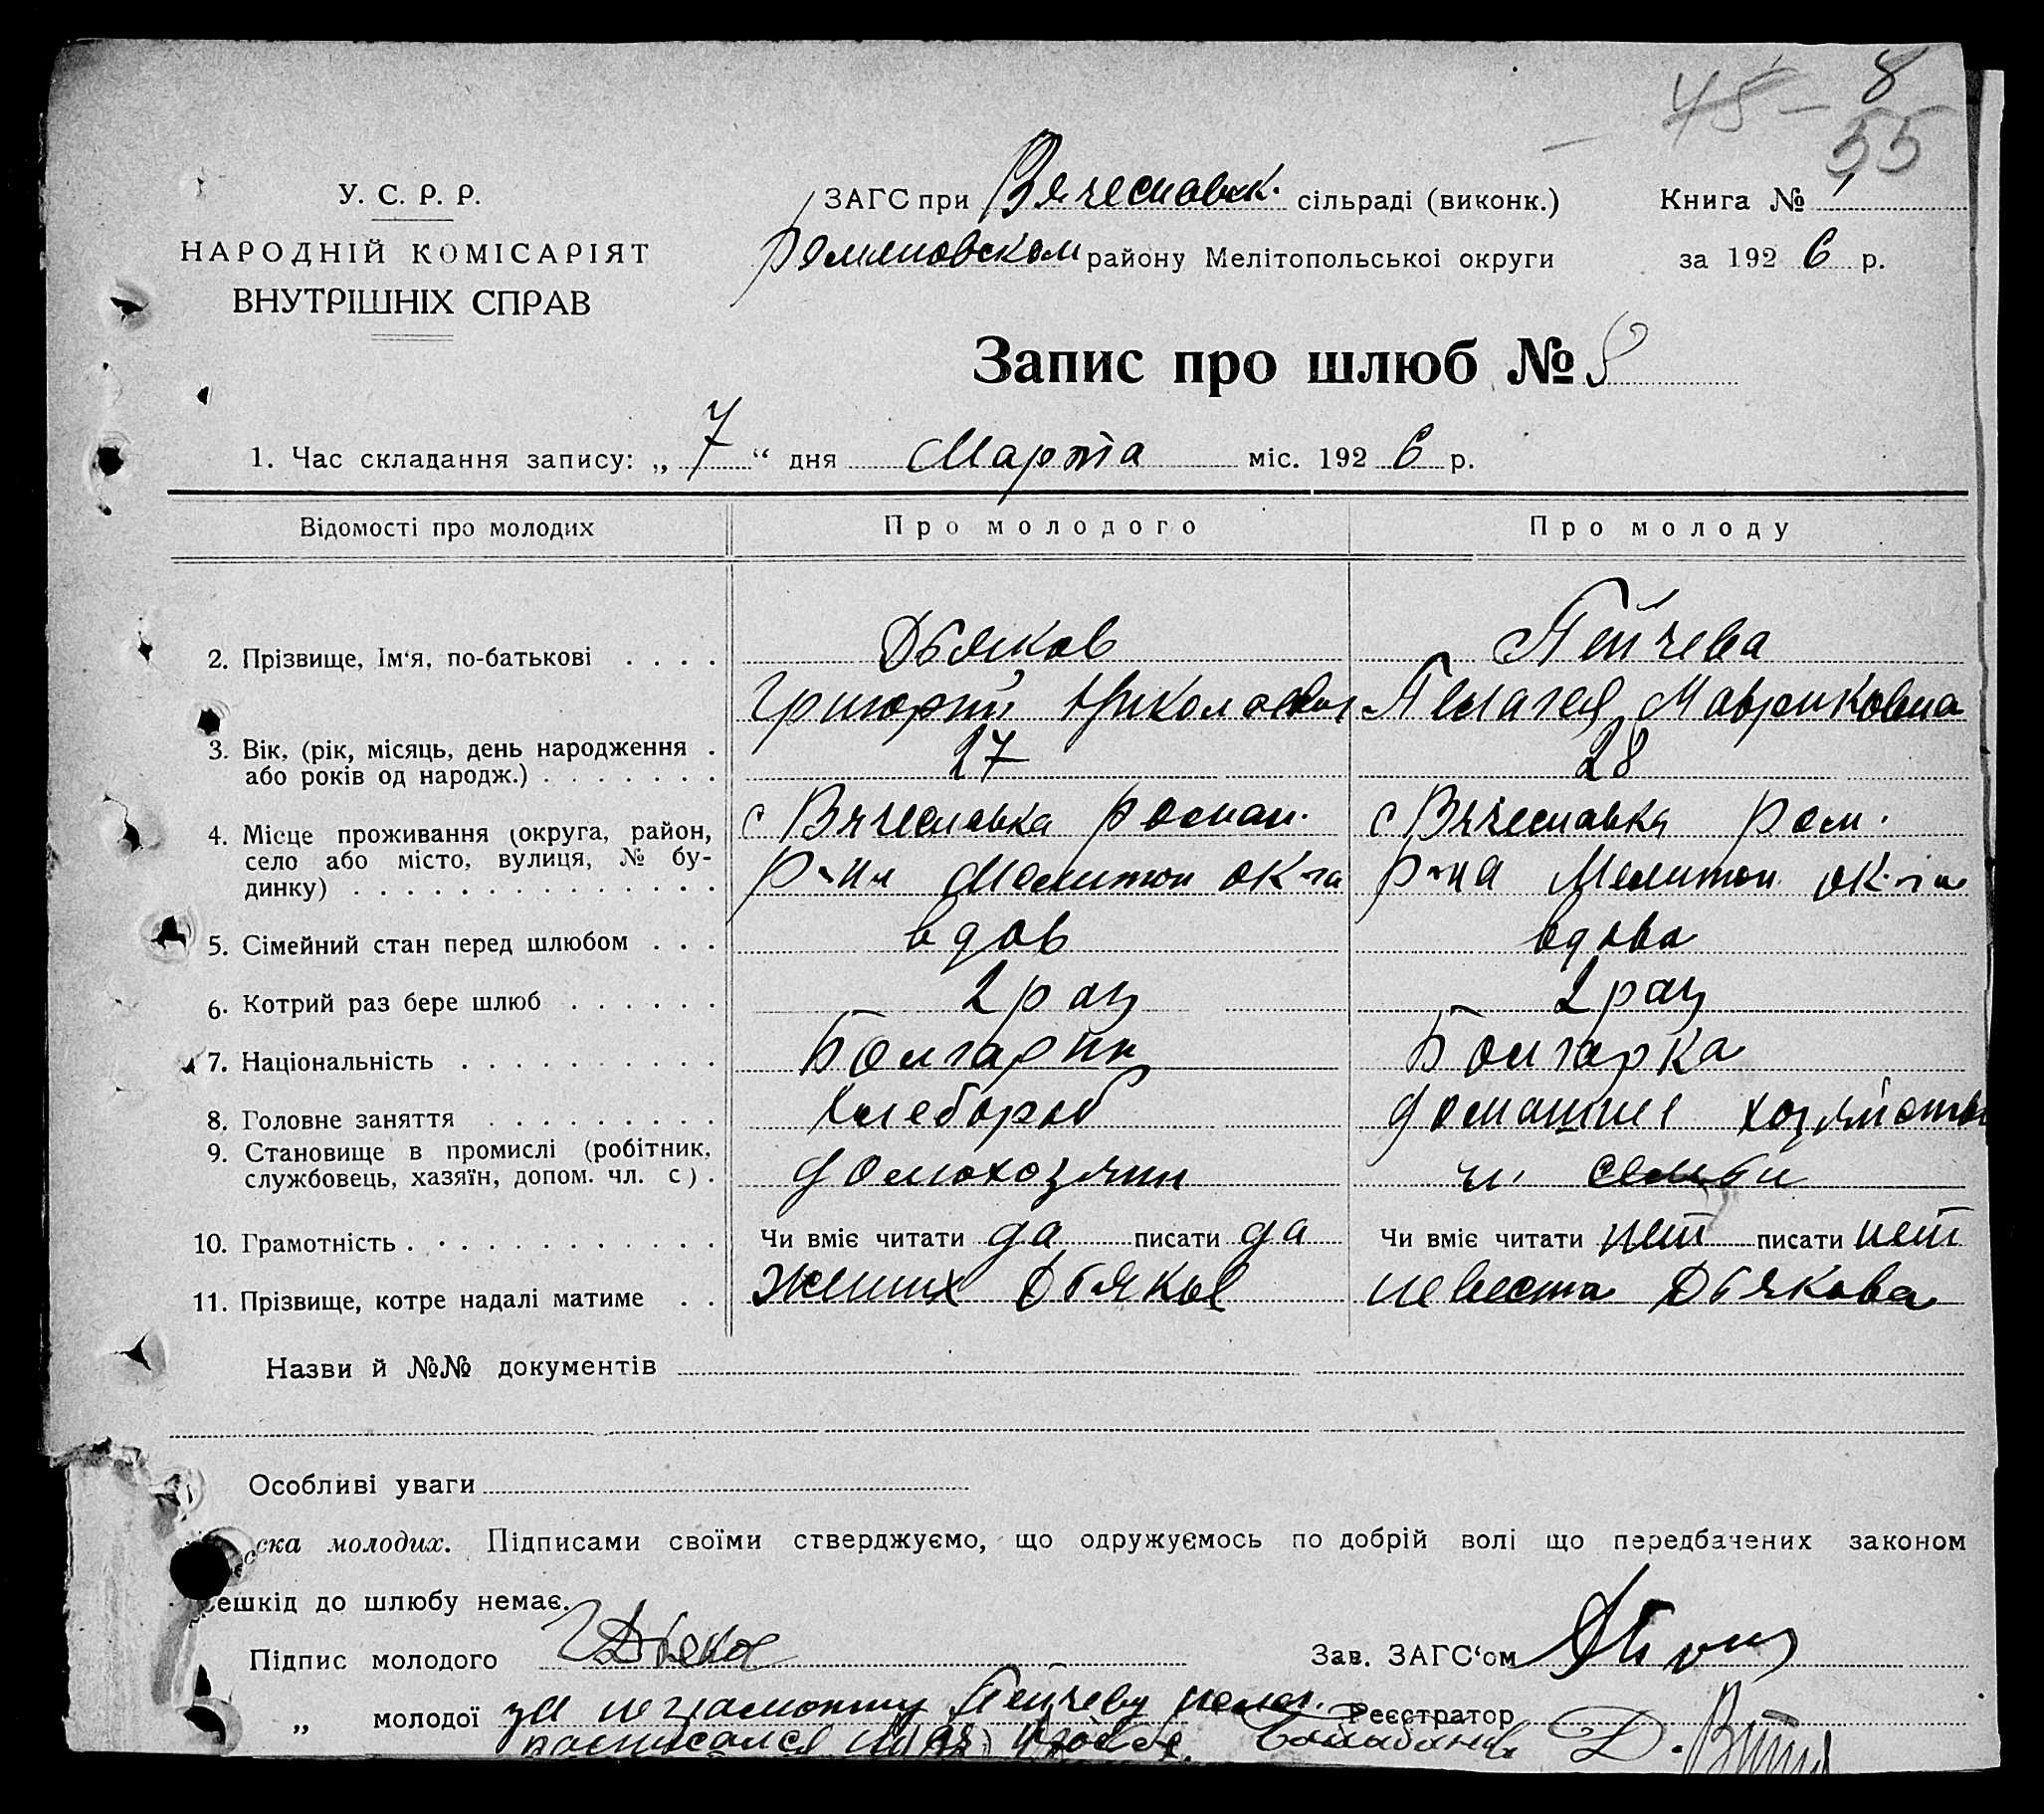 45 – 8
55
У. С. Р. Р.
НАРОДНІЙ КОМІСАРІЯТ
ВНУТРІШНІХ СПРАВ
ЗАГС при Вячеславск. сільраді (виконк.)
Романовском району Мелітопольської округи
Книга № 1
за 1926 р.
Запис про шлюб № 8
1. Час складання запису: „ 7 “ дня Марта міс. 1926 р.
Відомості про молодих Про молодого Про молоду
2. Прізвище, Ім‘я, по-батькові . . . . Дьяков Пейчева
Григорий Николаевич Пелагея Мавриковна
3. Вік, (рік, місяць, день народження . 27 28
або років од народж.) . . . . . . .
4. Місце проживання (округа, район, с Вячеславка Роман. с Вячеславка Ром.
село або місто, вулиця, № бу- р-на Мелитоп ок-га р-на Мелитоп. ок-га
динку) . . . . . . . . . . . . . .
5. Сімейний стан перед шлюбом . . . вдов вдова
6. Котрий раз бере шлюб . . . . . . 2 раз 2 раз
7. Національність . . . . . . . . . . Болгарин Болгарка
8. Головне заняття . . . . . . . . . Хлебороб домашнее хозяйство
9. Становище в промислі (робітник,
службовець, хазяїн, допом. чл. с) . домохозяин чл. семьи
10. Грамотність . . . . . . . . . . . . Чи вміє читати да писати да Чи вміє читати нет писати нет
11. Прізвище, котре надалі матиме . . жених Дьяков невеста Дьякова
Назви й №№ документів
Особливі уваги
ска молодих. Підписами своїми стверджуємо, що одружуємось по добрій волі що передбачених законом
решкід до шлюбу немає.
Підпис молодого Г Дьяков Зав. ЗАГС‘ом
„ молодої за неграмотну Пейчеву Пелаг. Реєстратор
росписался